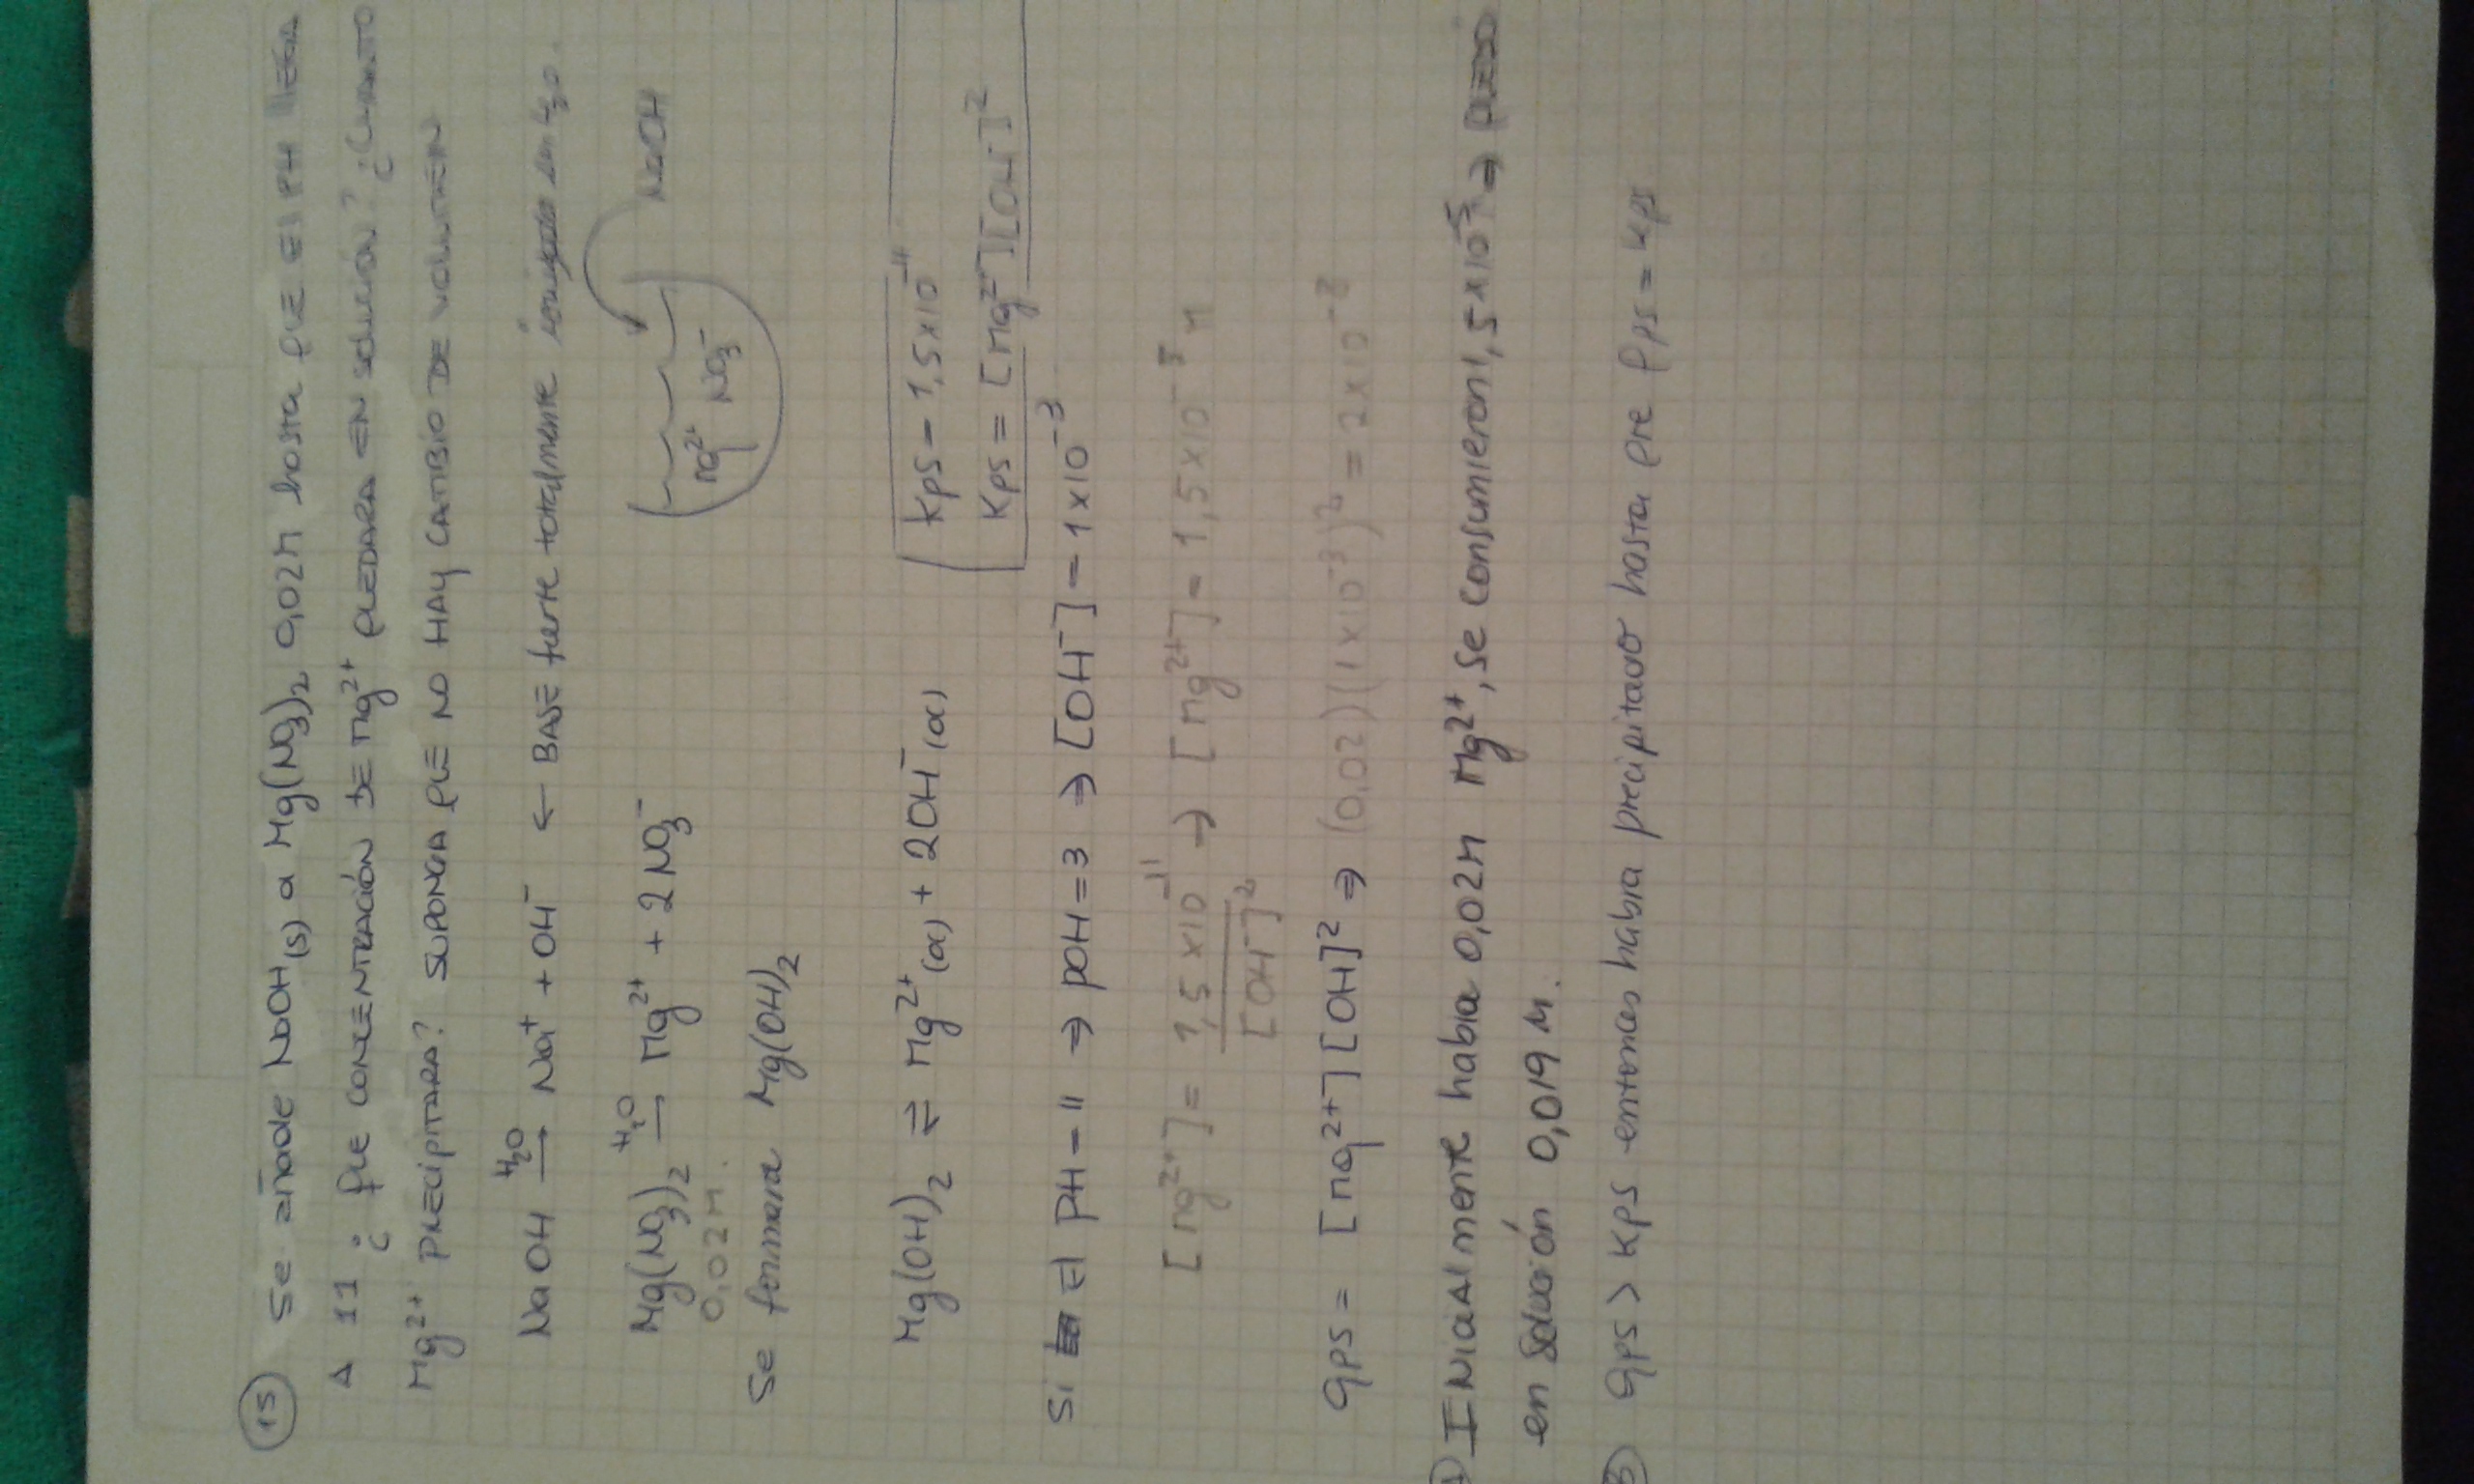 15 Se añade NaOH(s) a Mg(NO3)2 0,02M hasta que el pH llega
A 11 ¿Que concentración de Mg2+ quedara en solución? ¿Cuanto
Mg2+ precipitara? suponga que no hay cambio de volumen
NaOH H2O → Na+ + OH- ← BASE fuerte totalmente ionizada en H2O.
Mg(NO3)2 H2O → Mg2+ + 2NO3-
0,02M.
NaOH
Mg2+ NO3-
Se formara Mg(OH)2
Kps = 1,5x10^-11
Mg(OH)2 ⇌ Mg2+(ac) + 2OH-(ac)
Kps = [Mg2+][OH-]2
Si el pH = 11 ⇒ pOH = 3 ⇒ [OH-] = 1x10^-3
[Mg2+] = 1,5x10^-11 / [OH-]2 → [Mg2+] = 1,5x10^-5 M
Qps = [Mg2+][OH]2 ⇒ (0,02)(1x10^-3)2 = 2x10^-8
Inicialmente habia 0,02M Mg2+, se consumieron 1,5x10^-5 ⇒ quedo
en solución 0,019 M.
Qps > Kps entonces habra precipitado hasta que Qps = Kps